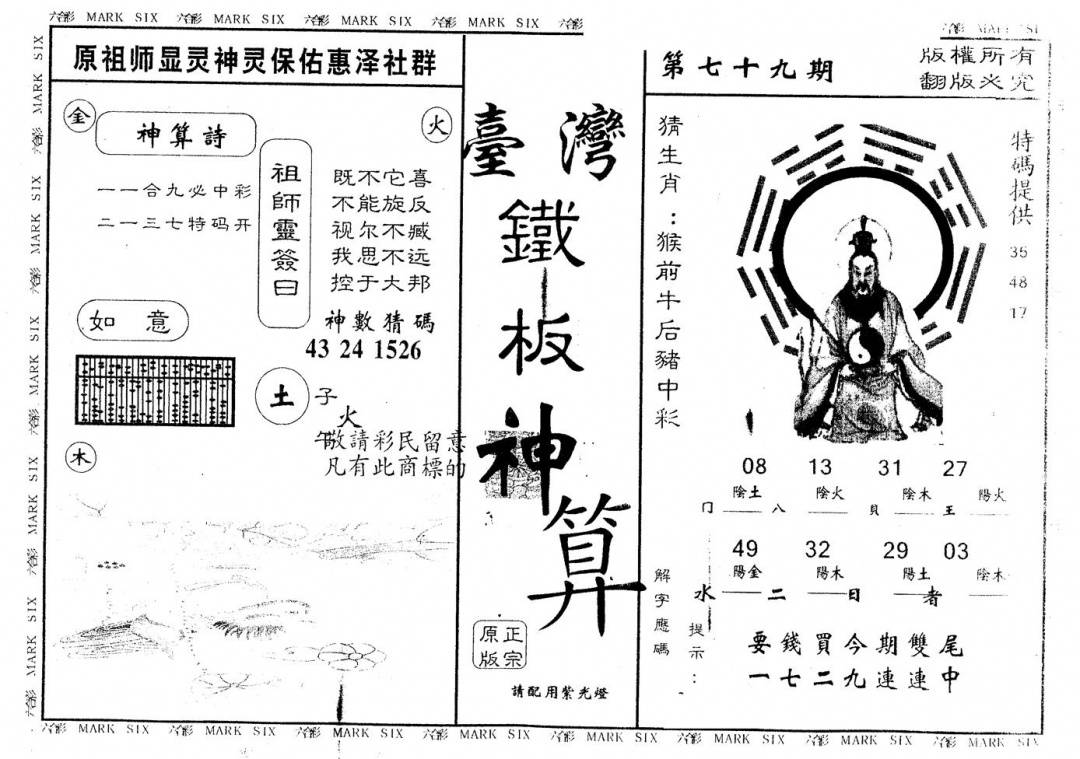 六合彩 MARK SIX 六合彩 MARK SIX 六合彩 MARK SIX 六合彩 MARK SIX 六合彩
六合彩 MARK SI
原祖师显灵神灵保佑惠泽社群
金
火
神算詩
一一合九必中彩
二一三七特码开
祖師靈簽曰
既不它喜
不能旋反
视尔不臧
我思不远
控于大邦
如意
神數猜碼
43 24 1526
土
子
火
午
敬請彩民留意
凡有此商標的
木
臺灣
鐵板神算
正宗
原版
請配用紫光燈
第七十九期
版權所有
翻版必究
猜生肖：猴前牛后豬中彩
特碼提供
35
48
17
08 13 31 27
陰土 陰火 陰木 陽火
冂 八 貝 王
49 32 29 03
陽金 陽木 陽土 陰木
水 二 日 者
解字應碼
提示：
要錢買今期雙尾
一七二九連連中
六合彩 MARK SIX 六合彩 MARK SIX 六合彩 MARK SIX 六合彩 MARK SIX 六合彩 MARK SIX 六合彩 MARK SIX 六合彩 MARK SIX 六合彩 MARK SIX
六合彩 MARK SIX 六合彩 MARK SIX 六合彩 MARK SIX 六合彩 MARK SIX 六合彩 MARK SIX